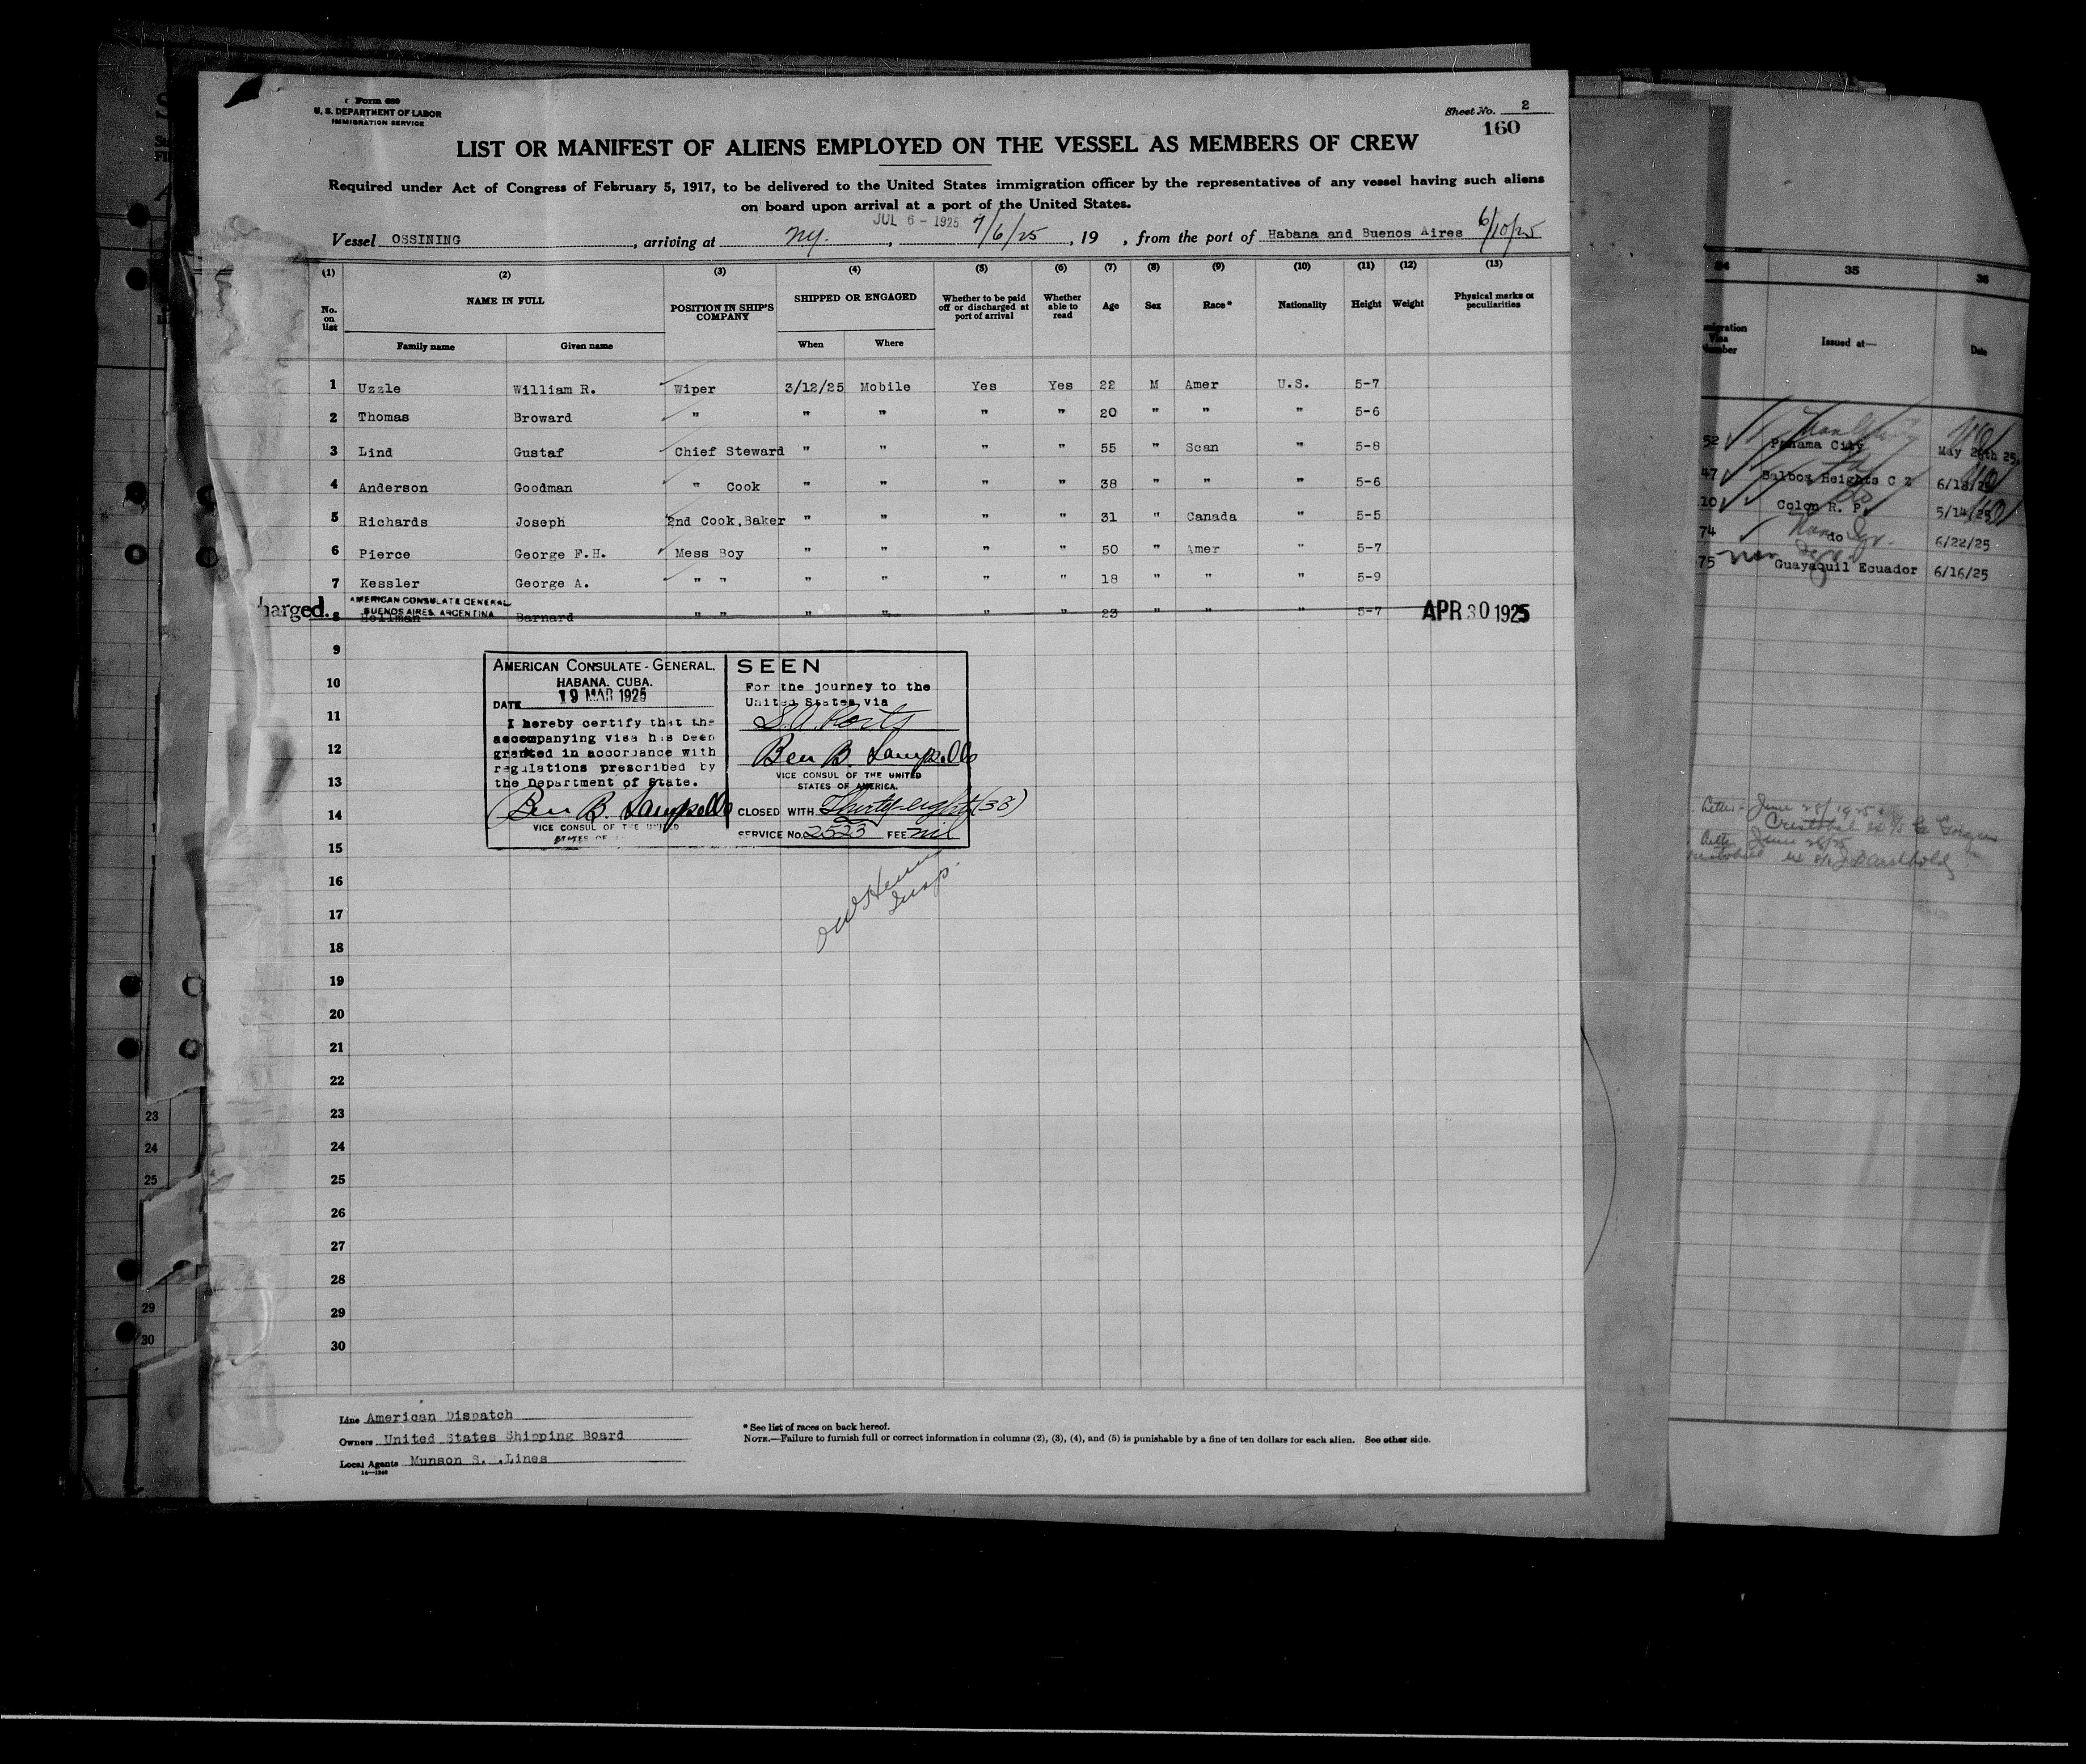 Form 680
U. S. DEPARTMENT OF LABOR
IMMIGRATION SERVICE
Sheet No. 2
160
LIST OR MANIFEST OF ALIENS EMPLOYED ON THE VESSEL AS MEMBERS OF CREW
Required under Act of Congress of February 5, 1917, to be delivered to the United States immigration officer by the representatives of any vessel having such aliens
on board upon arrival at a port of the United States.
JUL 6 - 1925
Vessel OSSINING, arriving at N.Y., 7/6/25, 19 , from the port of Habana and Buenos Aires 6/10/25
(1) (2) (3) (4) (5) (6) (7) (8) (9) (10) (11) (12) (13)
No. on list NAME IN FULL POSITION IN SHIP'S COMPANY SHIPPED OR ENGAGED Whether to be paid off or discharged at port of arrival Whether able to read Age Sex Race* Nationality Height Weight Physical marks or peculiarities
Family name Given name When Where
1 Uzzle William R. Wiper 3/12/25 Mobile Yes Yes 22 M Amer U.S. 5-7
2 Thomas Broward " " " " " 20 " " " 5-6
3 Lind Gustaf Chief Steward " " " " 55 " Scan " 5-8
4 Anderson Goodman " Cook " " " " 38 " " " 5-6
5 Richards Joseph 2nd Cook,Baker " " " " 31 " Canada " 5-5
6 Pierce George F.H. Mess Boy " " " " 50 " Amer " 5-7
7 Kessler George A. " " " " " " 18 " " " 5-9
harged. AMERICAN CONSULATE GENERAL
BUENOS AIRES, ARGENTINA
8 Hellman Barnard " " " " " " 23 " " " 5-7 APR 30 1925
9
10
11
12
13
14
15
16
17
18
19
20
21
22
23
24
25
26
27
28
29
30
AMERICAN CONSULATE-GENERAL,
HABANA. CUBA.
DATE 19 MAR 1925
I hereby certify that the
accompanying visa has been
granted in accordance with
regulations prescribed by
the Department of State.
Ben B.
VICE CONSUL OF THE UNITED
STATES OF
SEEN
For the journey to the
United States via
Ben B.
VICE CONSUL OF THE UNITED
STATES OF AMERICA.
CLOSED WITH Thirty-eight (38)
SERVICE No. 2523 FEE nil
Insp.
Line American Dispatch
Owners United States Shipping Board
Local Agents Munson S. .Lines
14—1240
* See list of races on back hereof.
NOTE.—Failure to furnish full or correct information in columns (2), (3), (4), and (5) is punishable by a fine of ten dollars for each alien. See other side.
35 36
Issued at— Date
52 Panama City May 26th 25.
47 Balboa Heights C Z
10 Colon R. P. 5/14/25
74 do 6/22/25
75 Guayaquil Ecuador 6/16/25
23
24
25
29
30